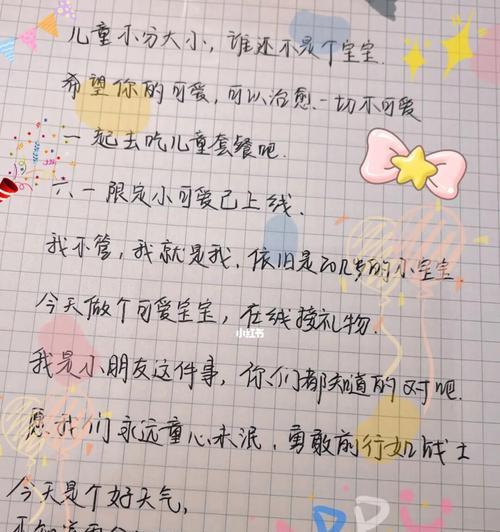 儿童不分大小，谁还不是个宝宝.
希望你的可爱，可以治愈一切不可爱
一起去吃儿童套餐吧.
六一限定小可爱已上线.
我不管，我就是我，依旧是20几岁的小宝宝
今天做个可爱宝宝，在线接礼物.
小红书
我是小朋友这件事，你们都知道的对吧.
愿我们永远童心未泯，勇敢前行如战士
今天是个好天气，